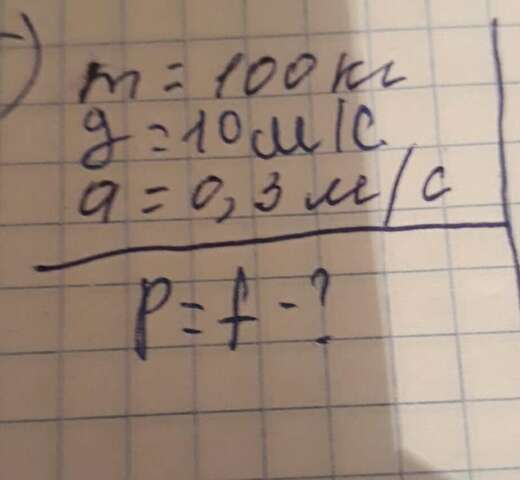 m = 100 кг
g = 10 м/с
a = 0,3 м/с
P = f - ?